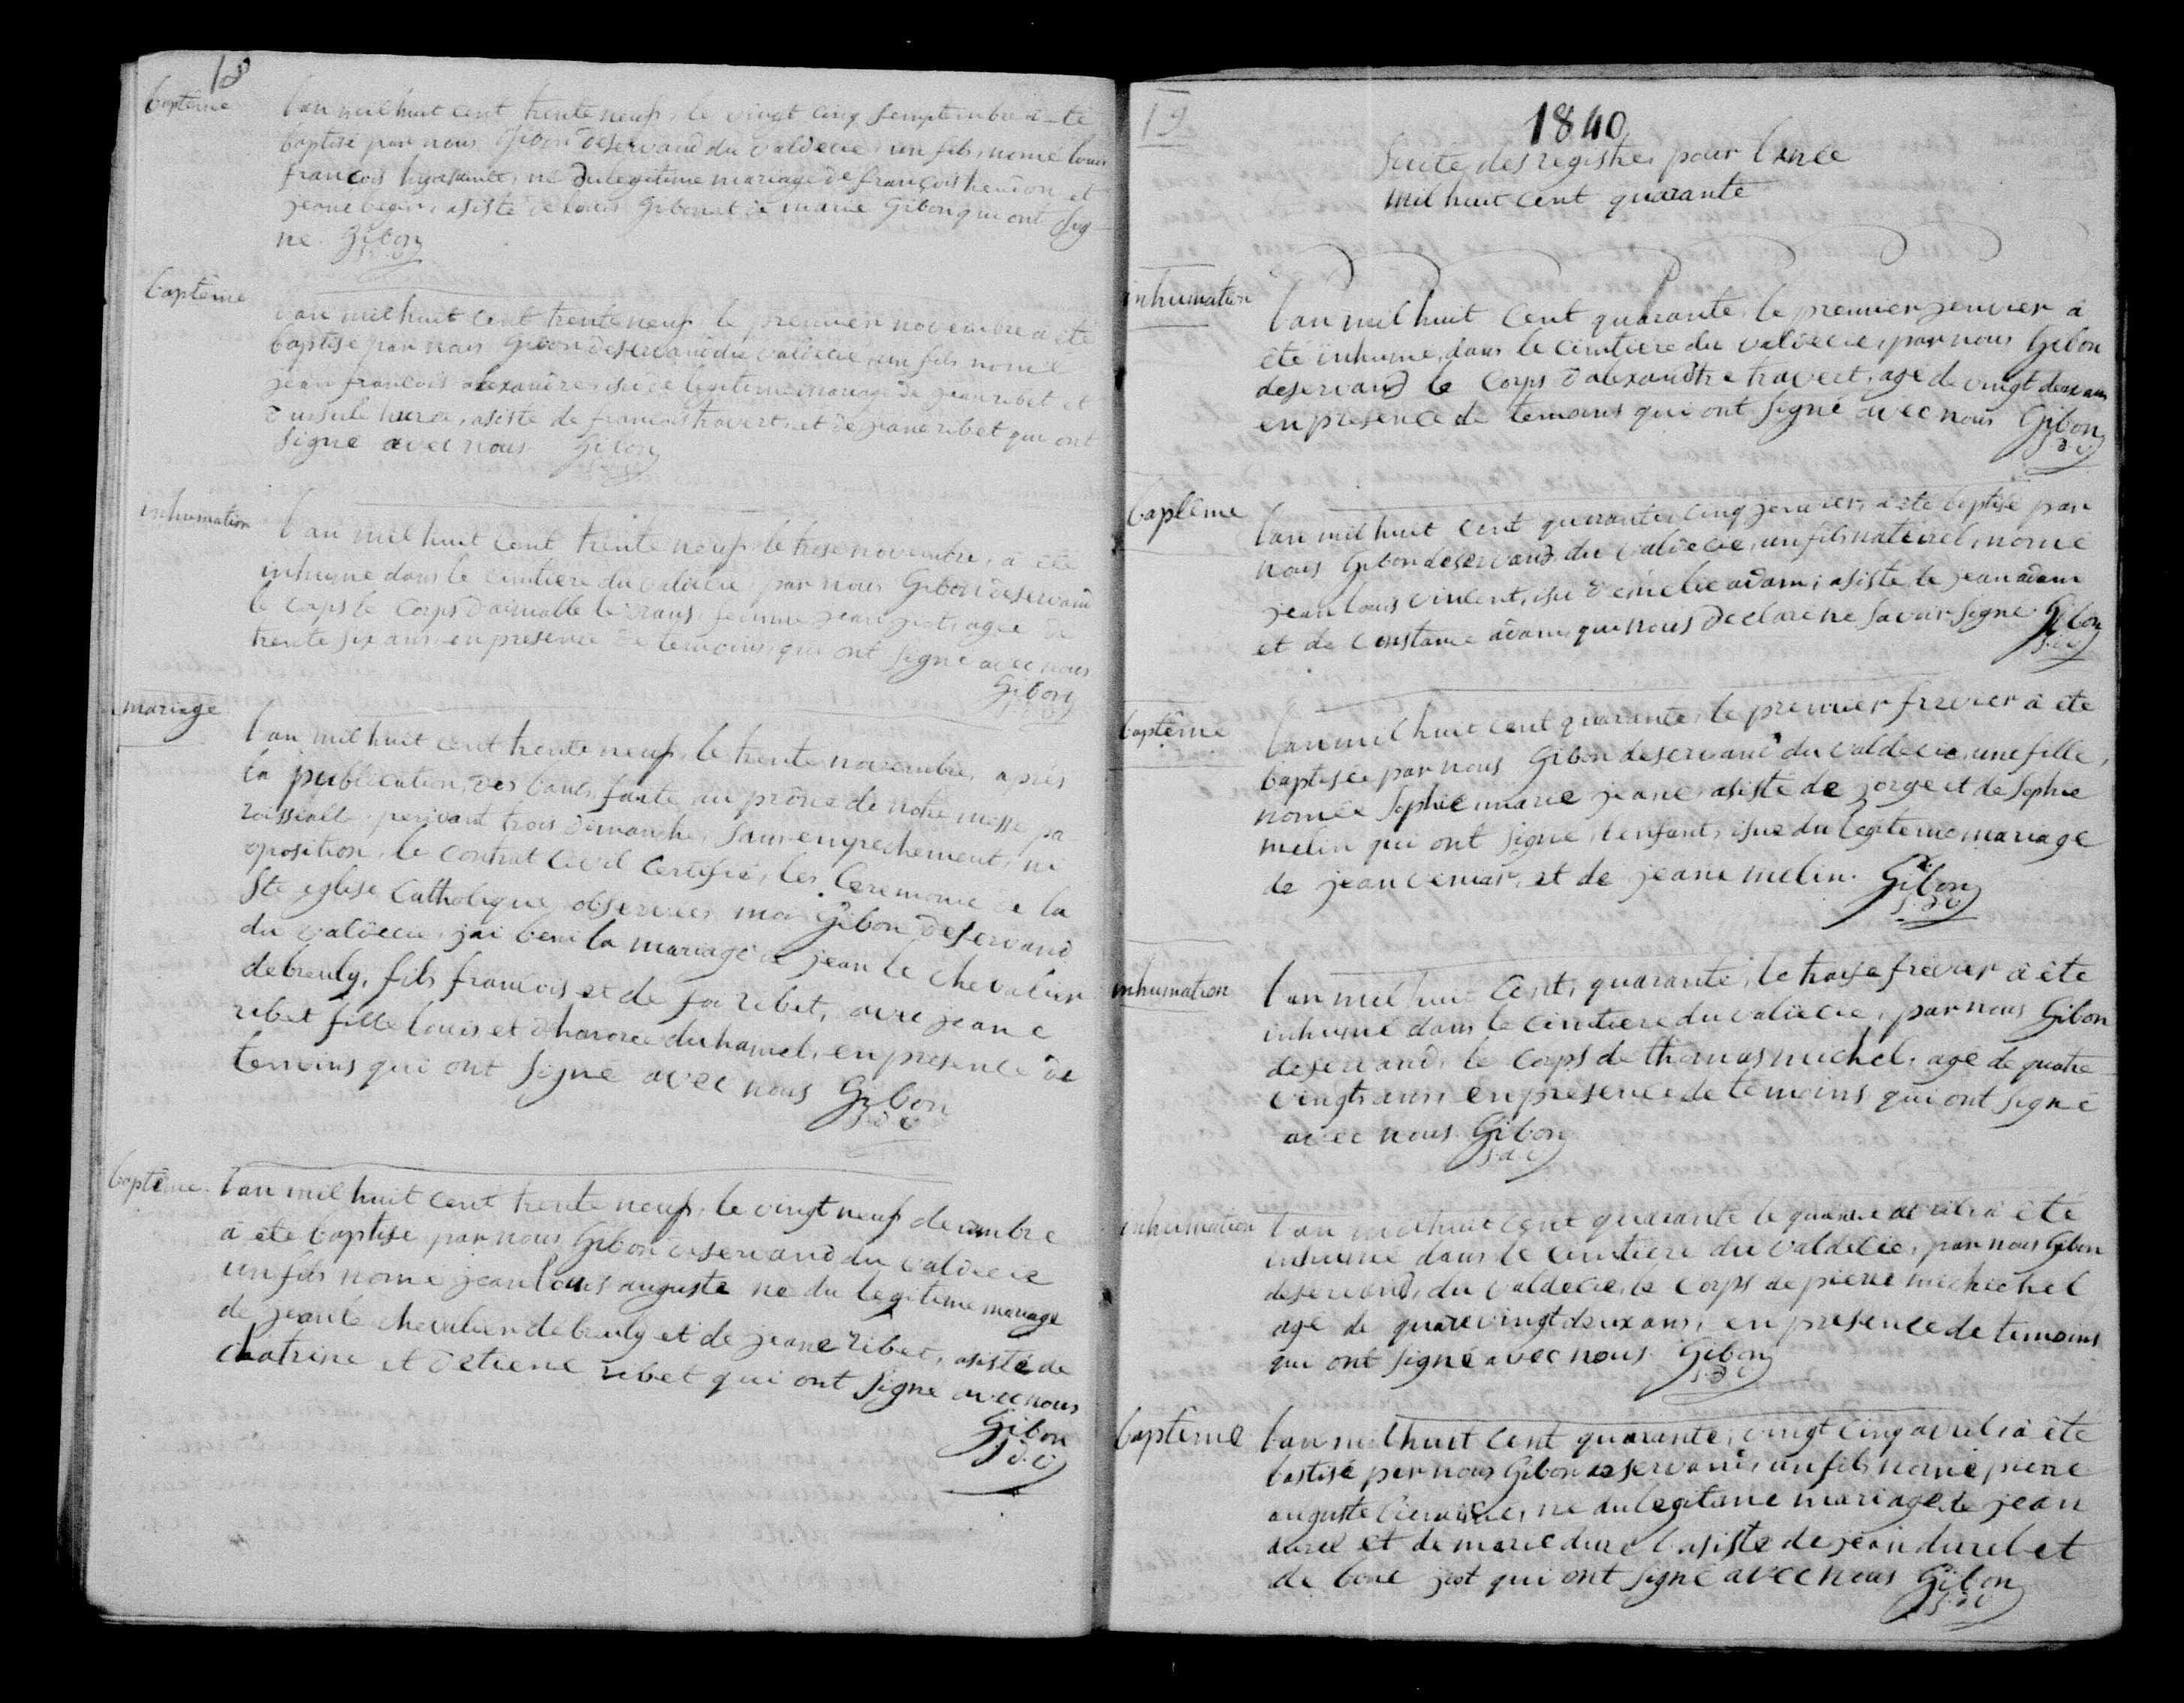 18
baptême
l'an mil huit cent trente neuf, le vingt cinq semptembre a été
baptisé par nous Gibon deservand du valdecie un fils, nomé louis
françois, né du legitime mariage de françois hendon et
jeane, asisté de louis Gibon et de marie Gibon qui ont sig
né Gibon
baptême
l'an mil huit cent trente neuf le premier novembre a été
baptisé par nous Gibon deservand du valdecie, un fils nomé
jean françois alexandre, isu de legitime mariage de jean ribet et
d'ursule, asisté de françois travert, et de jeane ribet qui ont
signé avec nous Gibon
inhumation
l'an mil huit cent trente neuf le trese novembre, a été
inhumé dans le cimtiere du valdecie par nous Gibon deservand
le corps le corps d'aimable, femme jean jiot, agée de
trente six ans en presence de temoins qui ont signé avec nous
Gibon
mariage
l'an mil huit cent trente neuf, le trente novembre, après
la publication, des bans, faite au prône de notre messe pa
roissialle, pendant trois dimanche, sans empechement, ni
oposition, le contrat civil certifié, les ceremonie de la
Ste eglise catholique observées moi Gibon deservand
du valdecie, jai beni la mariage de jean le chevalier
debreuly, fils françois et de foi ribet, avec jeane
ribet fille louis et d'honoree duhamel, en presence de
temoins qui ont signé avec nous Gibon
s.d.v
baptême
l'an mil huit cent trente neuf, le vingt neuf desembre
à été baptisé par nous Gibon deservand du valdecie
un fils nomé jean louis auguste né du legitime mariage
de jean le chevalier debreuly et de jeane ribet, asisté de
chatrine et d'etiene ribet qui ont signé avec nous
Gibon
s.d.v
19
1840
Suite des registre, pour lanée
mil huit cent quarante
inhumation
l'an mil huit cent quarante, le premier jenvier à
été inhumé, dans le cimtiere du valdecie, par nous Gibon
deservand le corps d'alexandre travert, agé de vingt deux ans
en presence de temoins qui ont signé avec nous Gibon
s.d.v
baptême
l'an mil huit cent quarante cinq jenvier, à été baptisé par
nous Gibon deservand, du valdecie, un fils naturel, nomé
jean louis vincent, isu d'emelie adam, asisté de jean adam
et de constance adam, qui nous declare ne savoir signé Gibon
s.d.v
baptême
l'an mil huit cent quarante, le premier frevier à été
baptisée par nous Gibon deservand du valdecie, une fille,
nomée Sophie marie jeane, asisté de jorge et de Sophie
melin qui ont signé, l'enfant, isue du legiteme mariage
de jean, et de jeane melin. Gibon
s.d.v
inhumation
l'an mil huit cent, quarante, le traise frevier à été
inhumé dans le cimtiere du valdecie, par nous Gibon
deservand, le corps de thomas michel, agé de quatre
vingts ans, en presence de temoins qui ont signé
avec nous Gibon
s.d.v
inhumation
l'an mil huit cent quarante le avril à été
inhumé dans le cimtiere du valdecie, par nous Gibon
deservand, du valdecie, le corps de pierre michichel
agé de quatre vingt deux ans, en presence de temoins
qui ont signé avec nous Gibon
s.d.v
baptême
l'an mil huit cent quarante, vingt cinq avril, à été
bastisé par nous Gibon deservand, un fils nomé pierre
auguste, né du legitime mariage de jean
durel et de marie durel asisté de jean durel et
de bone jiot qui ont signé avec nous Gibon
s.d.v